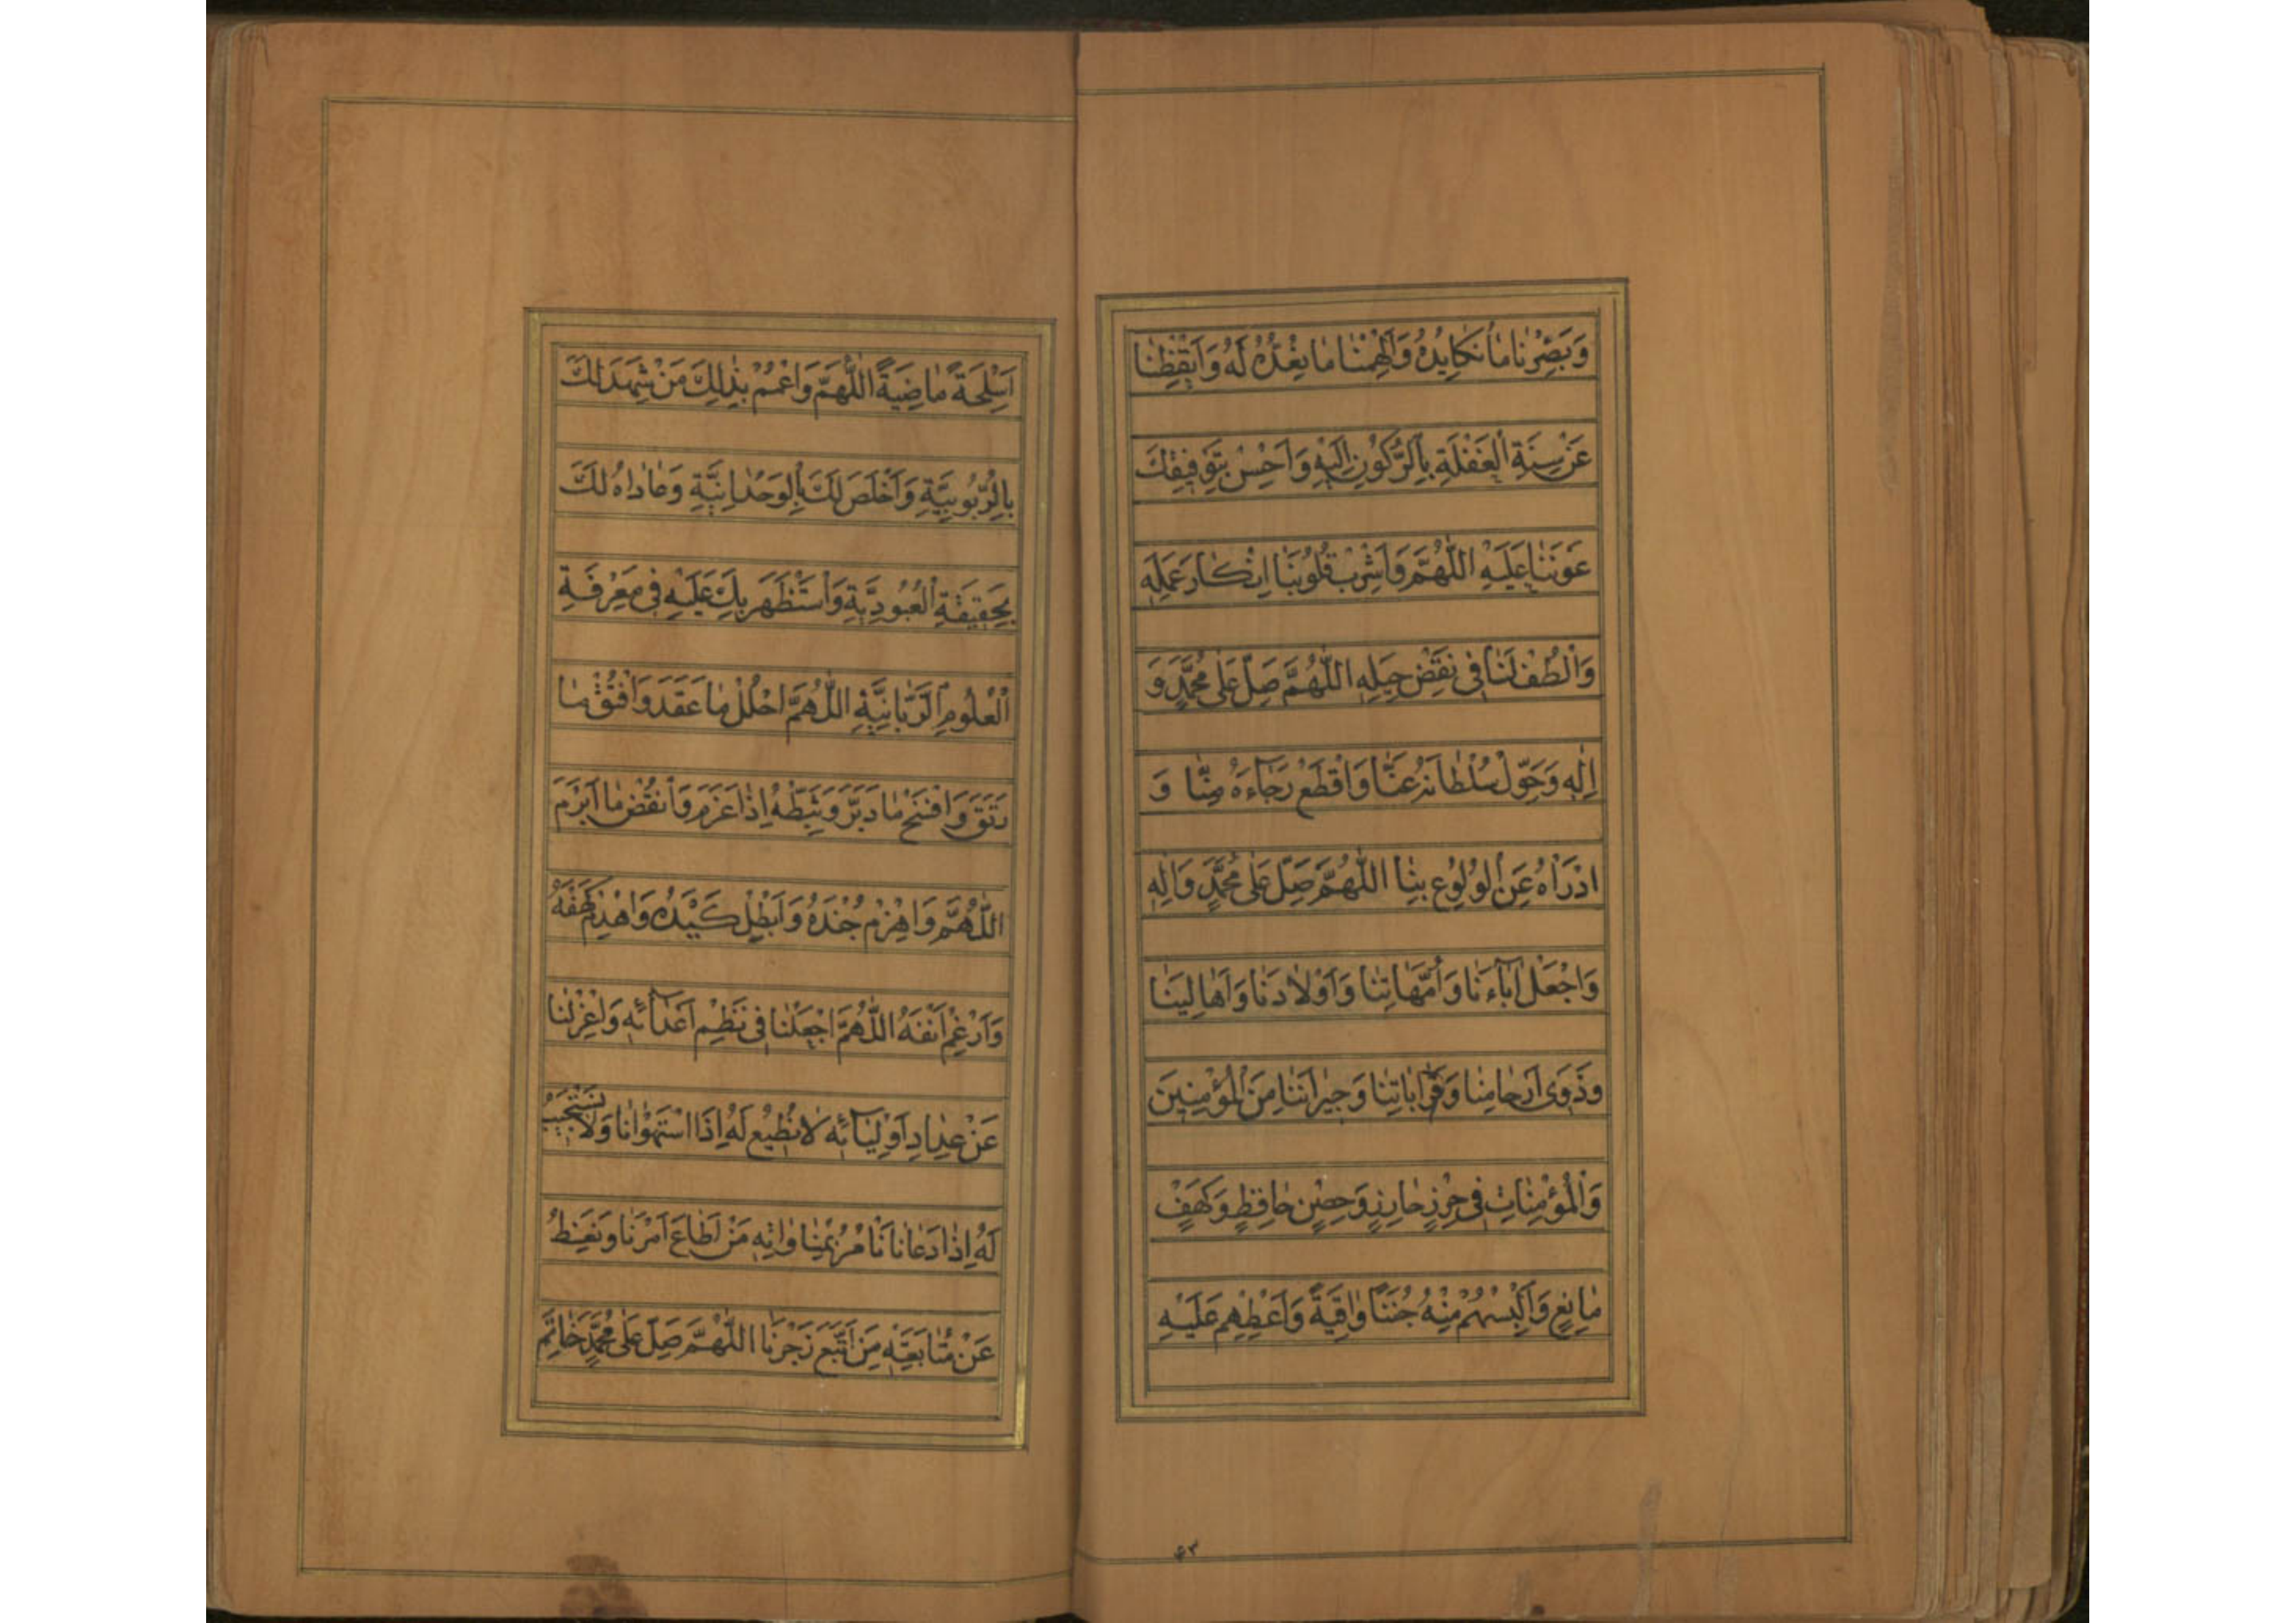 وَبَصِّرْنا مانُكايِدُهُ وَاَلْهِمْنا ما نُعِدُّهُ لَهُ وَاَيْقِظْنا
عَنْ سِنَةِ الْغَفْلَةِ بِالرُّكُونِ اِلَيْهِ وَاَحْسِنْ بِتَوْفِيقِكَ
عَوْنَنا عَلَيْهِ اللّٰهُمَّ وَاَشْرِبْ قُلُوبَنا اِنْكارَ عَمَلِهِ
وَالْطُفْ لَنا فى نَقْضِ حِيَلِهِ اللّٰهُمَّ صَلِّ عَلى مُحَمَّدٍ وَ
اٰلِهِ وَحَوِّلْ سُلْطانَهُ عَنّا وَاقْطَعْ رَجاءَهُ مِنّا وَ
ادْرَأْهُ عَنِ الْوُلُوعِ بِنا اللّٰهُمَّ صَلِّ عَلى مُحَمَّدٍ وَاٰلِهِ
وَاجْعَلْ اٰباءَنا وَاُمَّهاتِنا وَاَوْلادَنا وَاَهالِينا
وَذَوِى اَرْحامِنا وَقَراباتِنا وَجِيرانَنا مِنَ الْمُؤْمِنِينَ
وَالْمُؤْمِناتِ فى حِرْزٍ حارِزٍ وَحِصْنٍ حافِظٍ وَكَهْفٍ
مانِعٍ وَاَلْبِسْهُمْ مِنْهُ جُنَنًا واقِيَةً وَاَعْطِهِمْ عَلَيْهِ
٤٣
اَسْلِحَةً ماضِيَةً اللّٰهُمَّ وَاعْمُمْ بِذٰلِكَ مَنْ شَهِدَ لَكَ
بِالرُّبُوبِيَّةِ وَاَخْلَصَ لَكَ بِالْوَحْدانِيَّةِ وَعاداهُ لَكَ
بِحَقِيقَةِ الْعُبُودِيَّةِ وَاسْتَظْهَرَ بِكَ عَلَيْهِ فى مَعْرِفَةِ
الْعُلُومِ الرَّبّانِيَّةِ اللّٰهُمَّ احْلُلْ ما عَقَدَ وَافْتُقْ ما
رَتَقَ وَافْسَخْ ما دَبَّرَ وَثَبِّطْهُ اِذا عَزَمَ وَانْقُضْ ما اَبْرَمَ
اللّٰهُمَّ وَاهْزِمْ جُنْدَهُ وَاَبْطِلْ كَيْدَهُ وَاهْدِمْ كَهْفَهُ
وَاَرْغِمْ اَنْفَهُ اللّٰهُمَّ اجْعَلْنا فى نَظْمِ اَعْدائِهِ وَاعْزِلْنا
عَنْ عِدادِ اَوْلِيائِهِ لا نُطِيعُ لَهُ اِذَا اسْتَهْوانا وَلا نَسْتَجِيبُ
لَهُ اِذا دَعانا نَأْمُرُ بِمُناواتِهِ مَنْ اَطاعَ اَمْرَنا وَنَعِظُ
عَنْ مُتابَعَتِهِ مَنِ اتَّبَعَ زَجْرَنا اللّٰهُمَّ صَلِّ عَلى مُحَمَّدٍ خاتَمِ